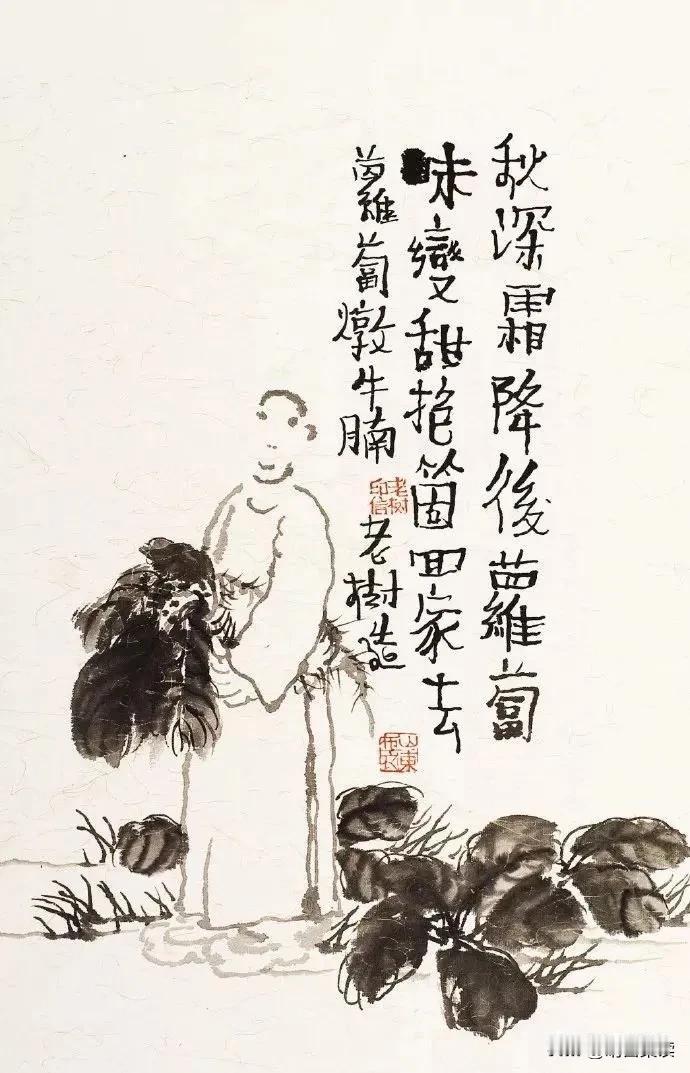 秋深霜降後蘿蔔
味變甜抱箇回家去
蘿蔔燉牛腩
老树印信
老樹造
山東